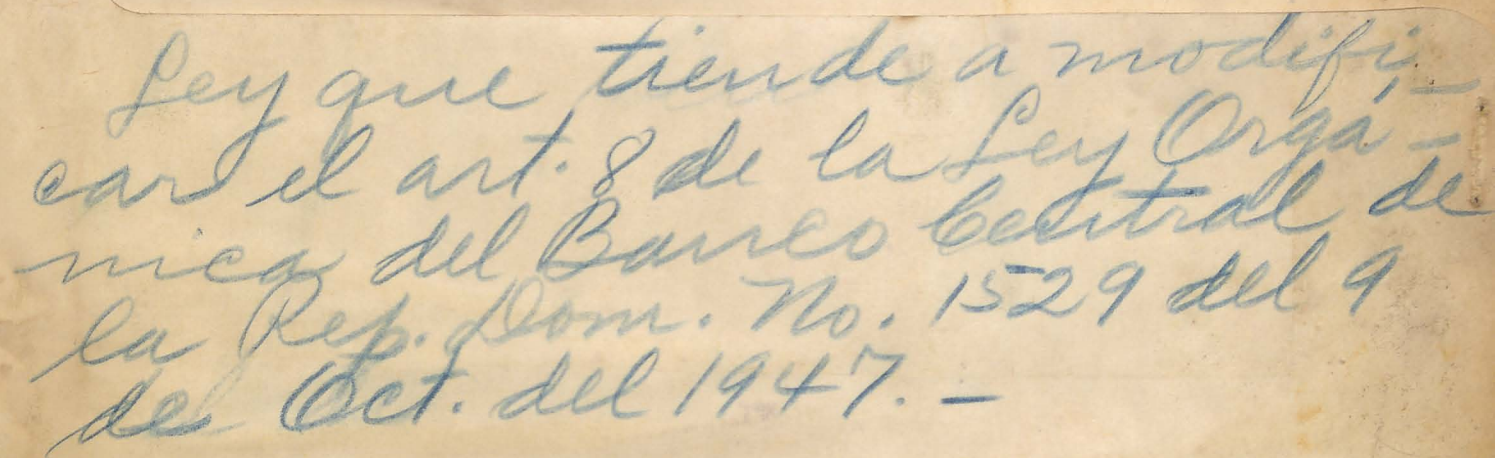 Ley que tiende a modifi-
car el art. 8 de la Ley Orgá-
nica del Banco Central de
la Rep. Dom. No. 1529 del 9
de Oct. del 1947. -